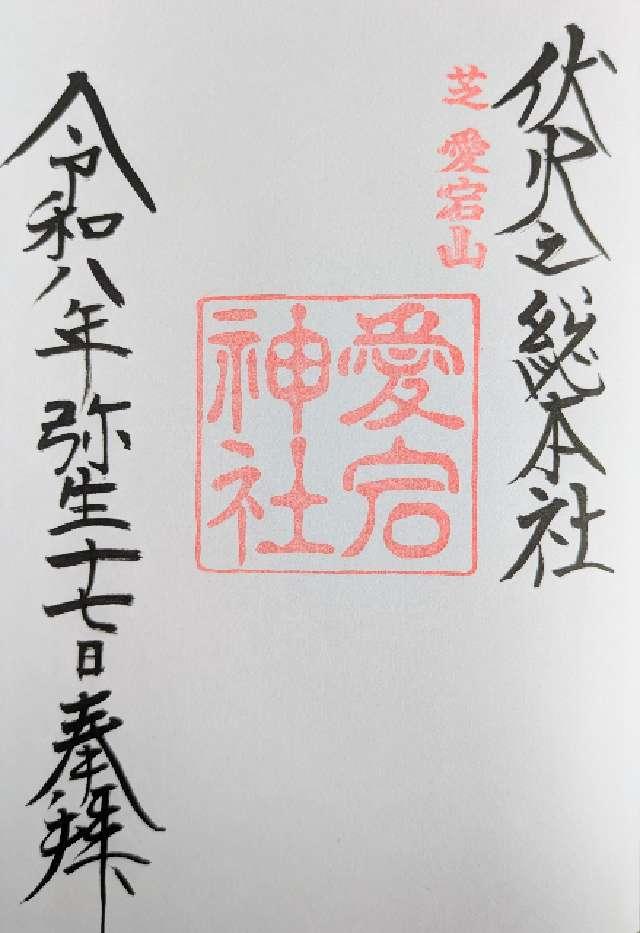 伏火之総本社
芝 愛宕山
愛宕
神社
令和八年弥生十七日奉拝